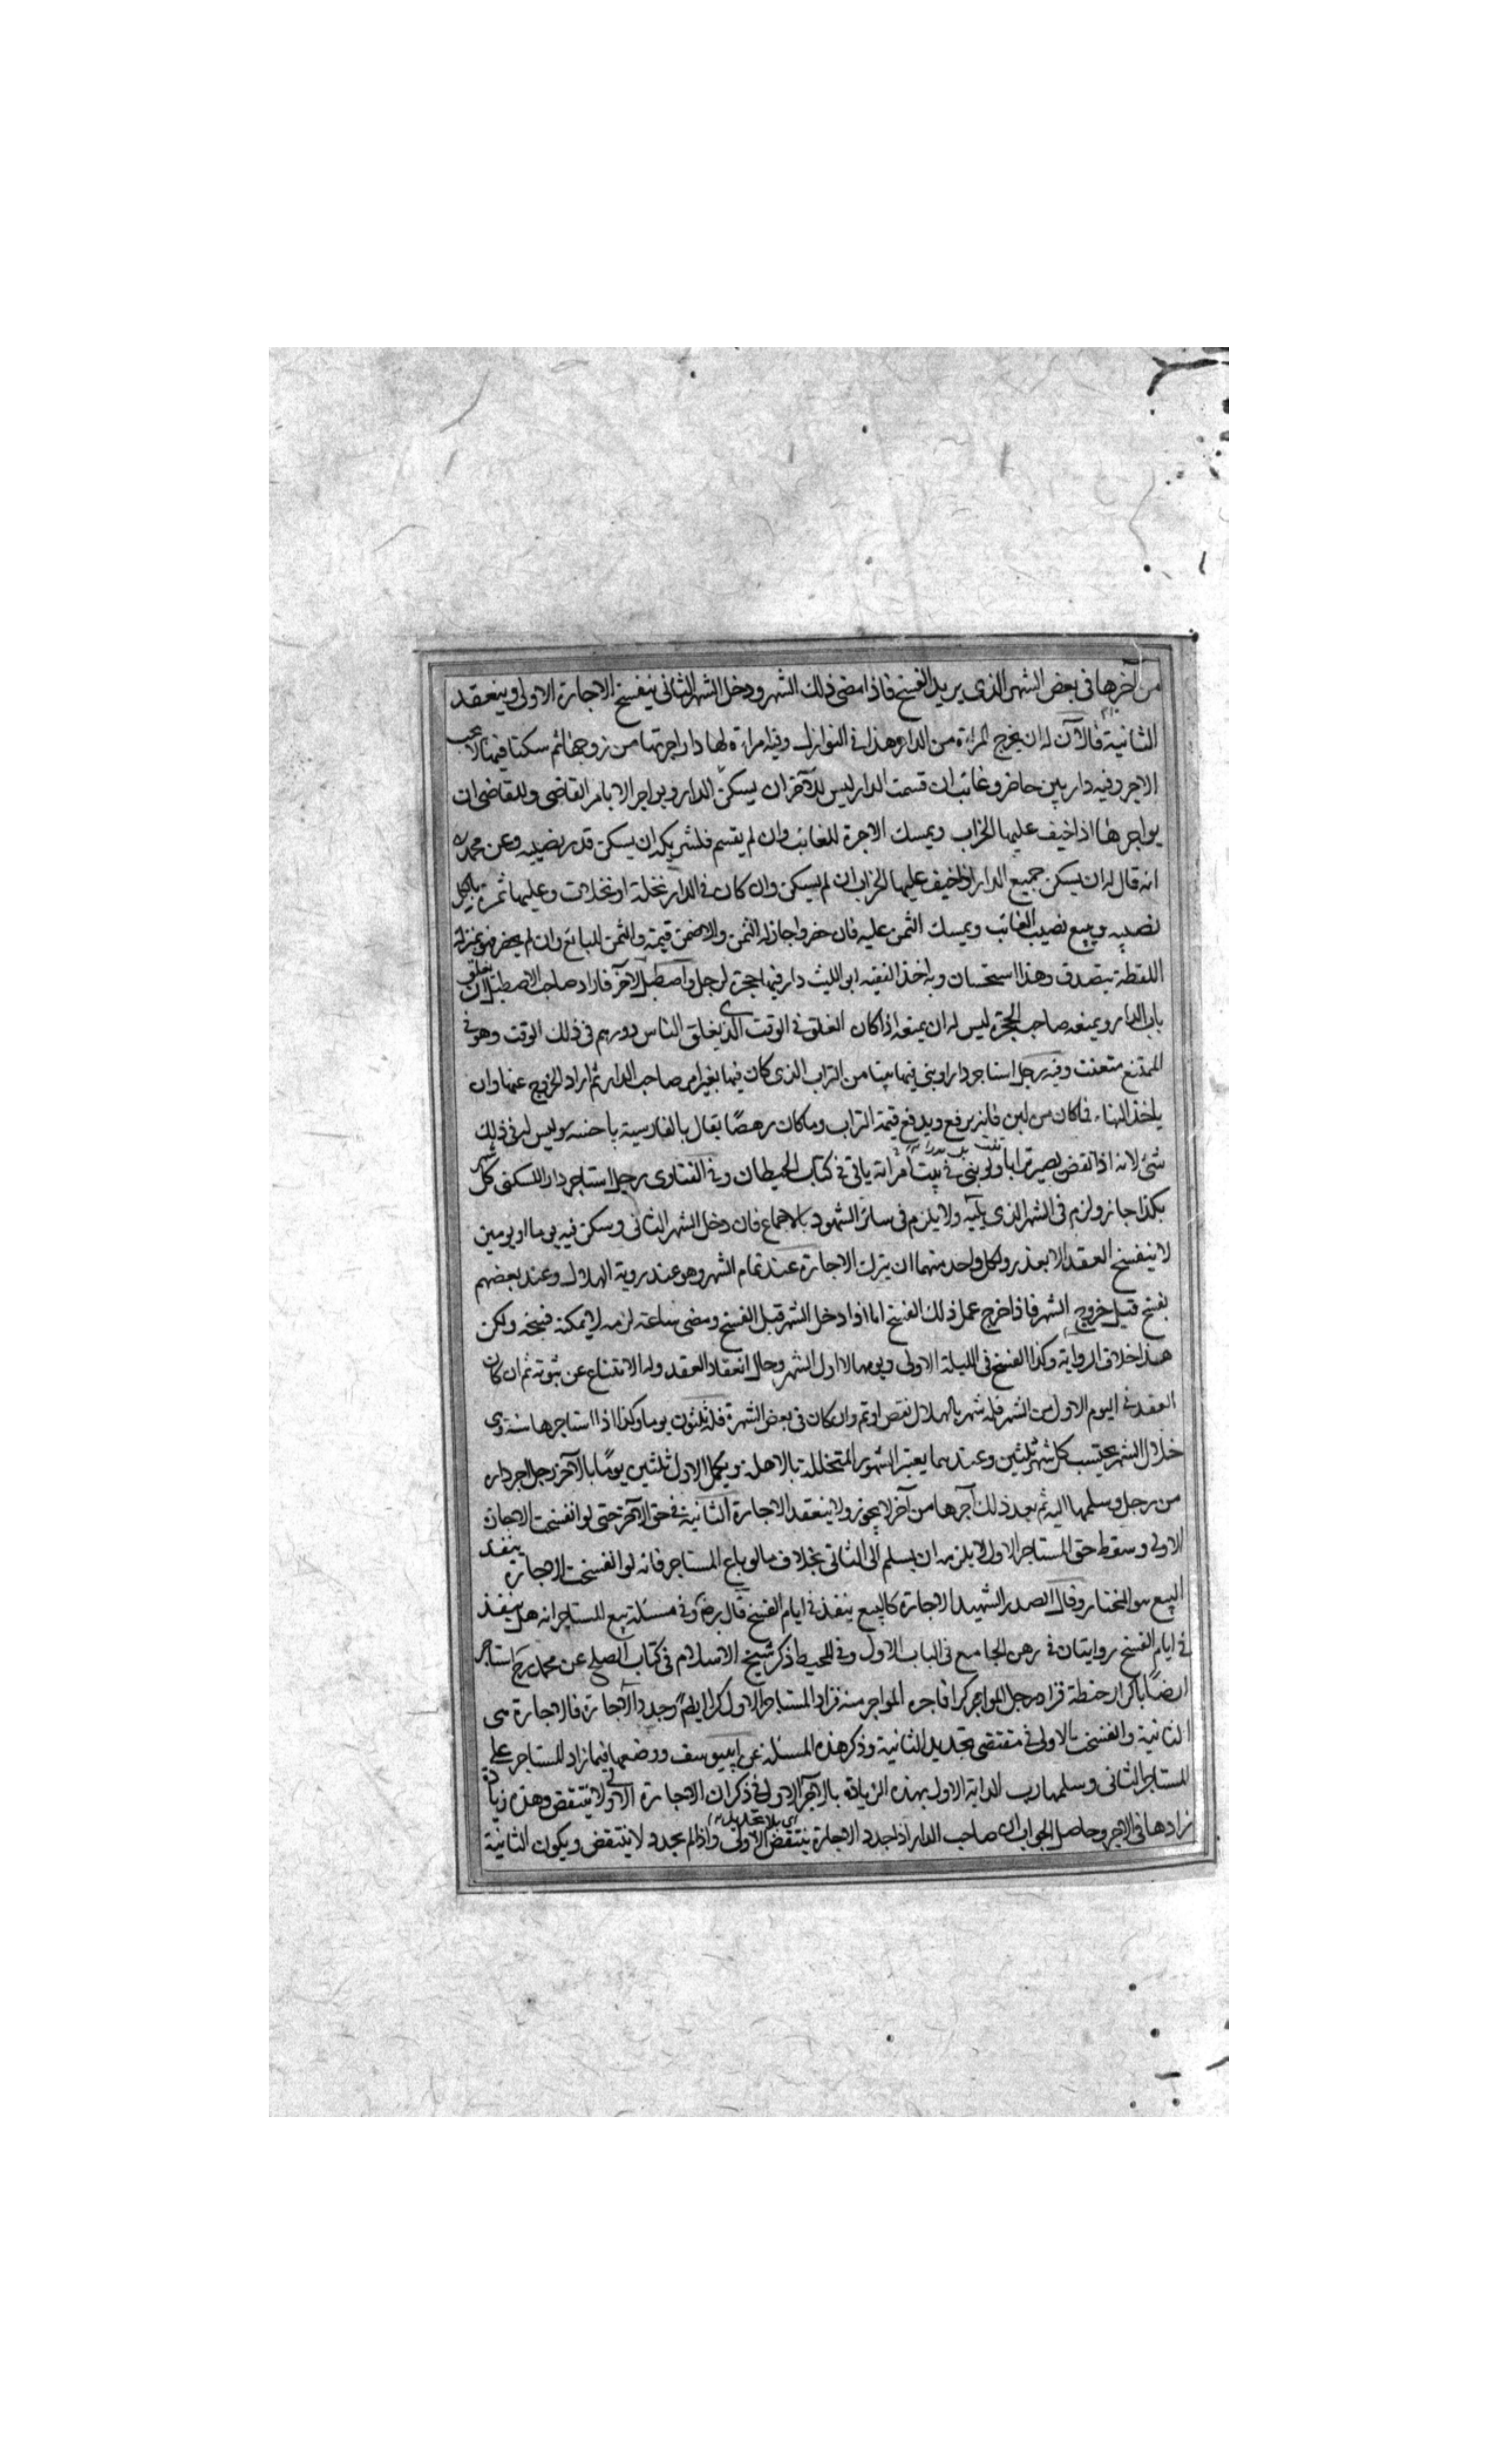 من آخرها في بعض الشهر الذي يريد الفسخ فاذا مضى ذلك الشهر ودخل الشهر الثاني ينفسخ الاجارة الاولى وينعقد
الثانية فالآن له ان يخرج المراة من الدار وهذا في النوازل وفيه امراة لها دار اجرتها من زوجها ثم سكنا فيها لا يجب
الاجر وفيه دار بين حاضر وغائب ان قسمت الدار ليس للآخر ان يسكن الدار ويواجر الا بامر القاضي وللقاضي ان
يواجرها اذا خيف عليها الخراب ويمسك الاجرة للغائب وان لم يقسم فلشريكه ان يسكن قدر نصيبه وعن محمد ره
انه قال له ان يسكن جميع الدار اذا خيف عليها الخراب ان لم يسكن وان كان في الدار نخلة او نخلات وعليها ثمرة ياكل
نصيبه ويبيع نصيب الغائب ويمسك الثمن عليه فان حضر واجاز له الثمن والا ضمن قيمته والثمن للبائع وان لم يحضر هو بمنزلة
اللقطة يتصدق وهذا استحسان وبه اخذ الفقيه ابي الليث دار فيها حجرة لرجل واصطبل لآخر فاراد صاحب الاصطبل ان يغلق
باب الدار ويمنعه صاحب الحجرة ليس له ان يمنعه اذا كان الغلق في الوقت الذي يغلق الناس دورهم في ذلك الوقت وهو في
الممتنع متعنت وفيه رجل استاجر دارا وبنى فيها بيتا من التراب الذي كان فيها بغير امر صاحب الدار ثم اراد الخروج عنها وان
ياخذ البناء فما كان من لبن فانه يرفع ويدفع قيمة التراب وما كان رهصا يقال بالفارسية باخسه وليس له في ذلك
شئ لانه اذا نقض يصير ترابا ولو بنى في بيت امراته ياتي في كتاب الحيطان وفي الفتاوى رجل استاجر دار للسكنى كل شهر
بكذا جاز ولزم في الشهر الذي يليه ولا يلزم في سائر الشهور بالاجماع فان دخل الشهر الثاني وسكن فيه يوما او يومين
لا ينفسخ العقد الا بعذر ولكل واحد منهما ان يترك الاجارة عند تمام الشهر وهو عند روية الهلال وعند بعضهم
يفسخ قبيل خروج الشهر فاذا خرج عمل ذلك الفسخ اما اذا دخل الشهر قبل الفسخ ومضى ساعة لزمه لا يمكنه فسخه ولكن
هذا خلاف الرواية وكذا الفسخ في الليلة الاولى ويومها لا اول الشهر وحال انعقاد العقد وله الامتناع عن ثبوته ثم ان كان
العقد في اليوم الاول من الشهر فله شهر بالهلال نقص او تم وان كان في بعض الشهر فله ثلثون يوما وكذا اذا استاجرها سنة في
خلال الشهر يحتسب كل شهر ثلثين وعندهما يعتبر الشهور المتخللة بالاهلة ويكمل الاول ثلثين يوما بالآخر رجل اجر داره
من رجل وسلمها اليه ثم بعد ذلك آجرها من آخر لا يجوز ولا ينعقد الاجارة الثانية في حق الآخر حتى لو انفسخت الاجارة
الاولى وسقط حق المستاجر الاول لا يلزمه ان يسلم الى الثاني بخلاف ما لو باع المستاجر فانه لو انفسخت الاجارة ينفذ
البيع هو المختار وقال الصدر الشهيد الاجارة كالبيع ينفذ في ايام الفسخ قال ره وفي مسئلة بيع المستاجر انه هل ينفذ
في ايام الفسخ روايتان في رهن الجامع في الباب الاول وفي المحيط ذكر شيخ الاسلام في كتاب الصلح عن محمد رح استاجر
ارضا باكرار حنطة فزاد رجل المواجر كرا فاجره المواجر منه فزاد المستاجر الاول كرا ايضا وجدد الاجارة فالاجارة هي
الثانية وانفسخت الاولى في مقتضى تجديد الثانية وذكر هذه المسئلة عن ابي يوسف ووضعها فيما زاد المستاجر على
المستاجر الثاني وسلمها رب الدابة الاول بهذه الزيادة بالاجر الاول في ذكر ان الاجارة الاولى لا تنتقض وهذه زيادة
زادها في الاجر وحاصل الجواب ان صاحب الدار اذا جدد الاجارة ينتقض الاولى واذا لم يجدد لا ينتقض ويكون الثانية